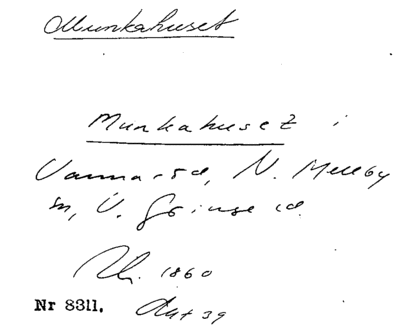 Munkahuset
Munkahuset i
Vannaröd, N. Mellby
sn, V. Göinge hd.
1860
Nr 8311.